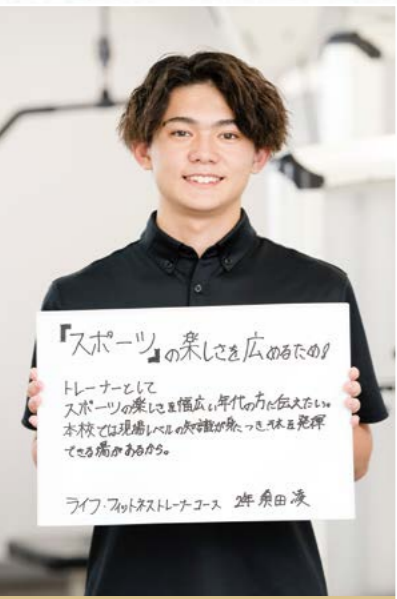 『スポーツ』の楽しさを広めるため!
トレーナーとして
スポーツの楽しさを幅広い年代の方に伝えたい。
本校では現場レベルの知識が身につき、それを発揮
できる場があるから。
ライフ・フィットネストレーナーコース 2年 桑田 凌